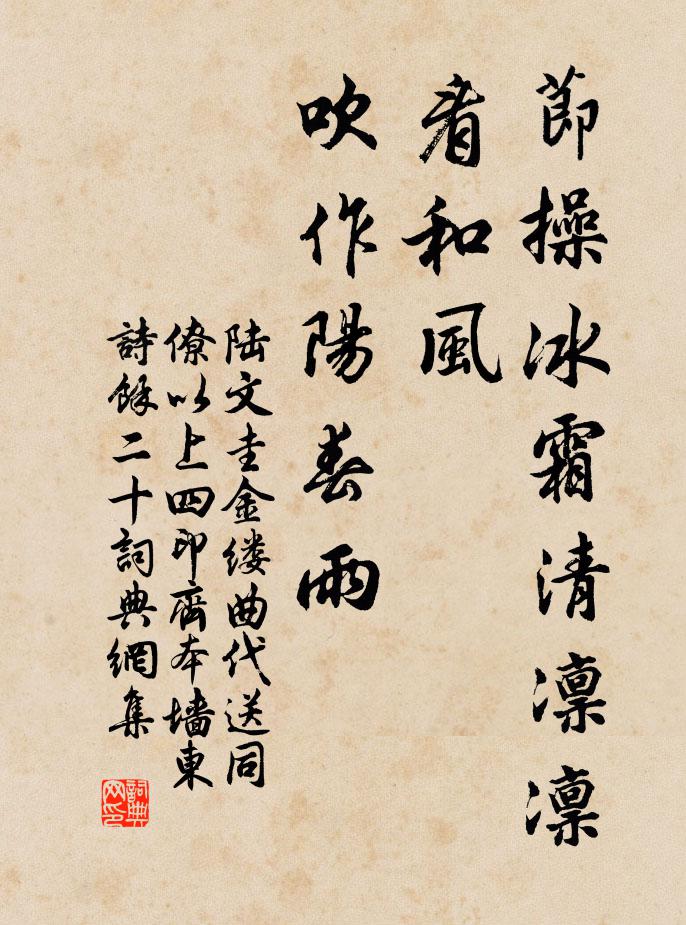 節操冰霜清凛凛
看和風
吹作陽春雨
陆文圭金缕曲代送同
僚以上四印齋本墙東
詩餘二十詞典網集
詞典
网印